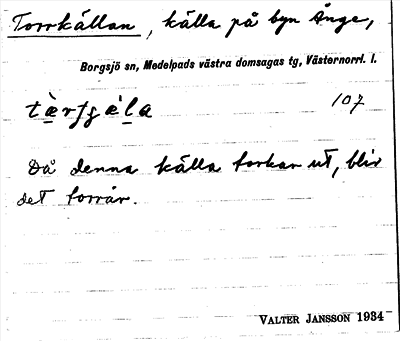 Torrkällan, källa på byn Ånge,
Borgsjö sn, Medelpads västra domsagas tg, Västernorrl. l.
107
Då denna källa torkar ut, blir
det torrår.
VALTER JANSSON 1934